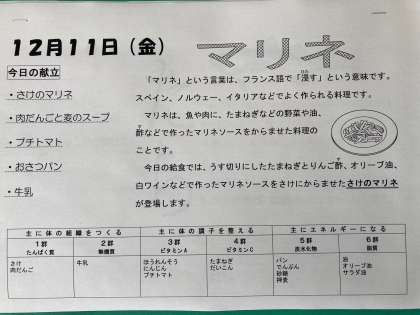 12月11日(金)
マリネ
今日の献立
・さけのマリネ
・肉だんごと麦のスープ
・プチトマト
・おさつパン
・牛乳
「マリネ」という言葉は、フランス語で「浸す」という意味です。
スペイン、ノルウェー、イタリアなどでよく作られる料理です。
マリネは、魚や肉に、たまねぎなどの野菜や油、
酢などで作ったマリネソースをからませた料理の
ことです。
今日の給食では、うす切りにしたたまねぎとりんご酢、オリーブ油、
白ワインなどで作ったマリネソースをさけにからませたさけのマリネ
が登場します。
主に体の組織をつくる 主に体の調子を整える 主にエネルギーになる
1群 2群 3群 4群 5群 6群
たんぱく質 無機質 ビタミンA ビタミンC 炭水化物 脂質
さけ 牛乳 ほうれんそう たまねぎ パン 油
肉だんご にんじん だいこん でんぷん オリーブ油
プチトマト 砂糖 サラダ油